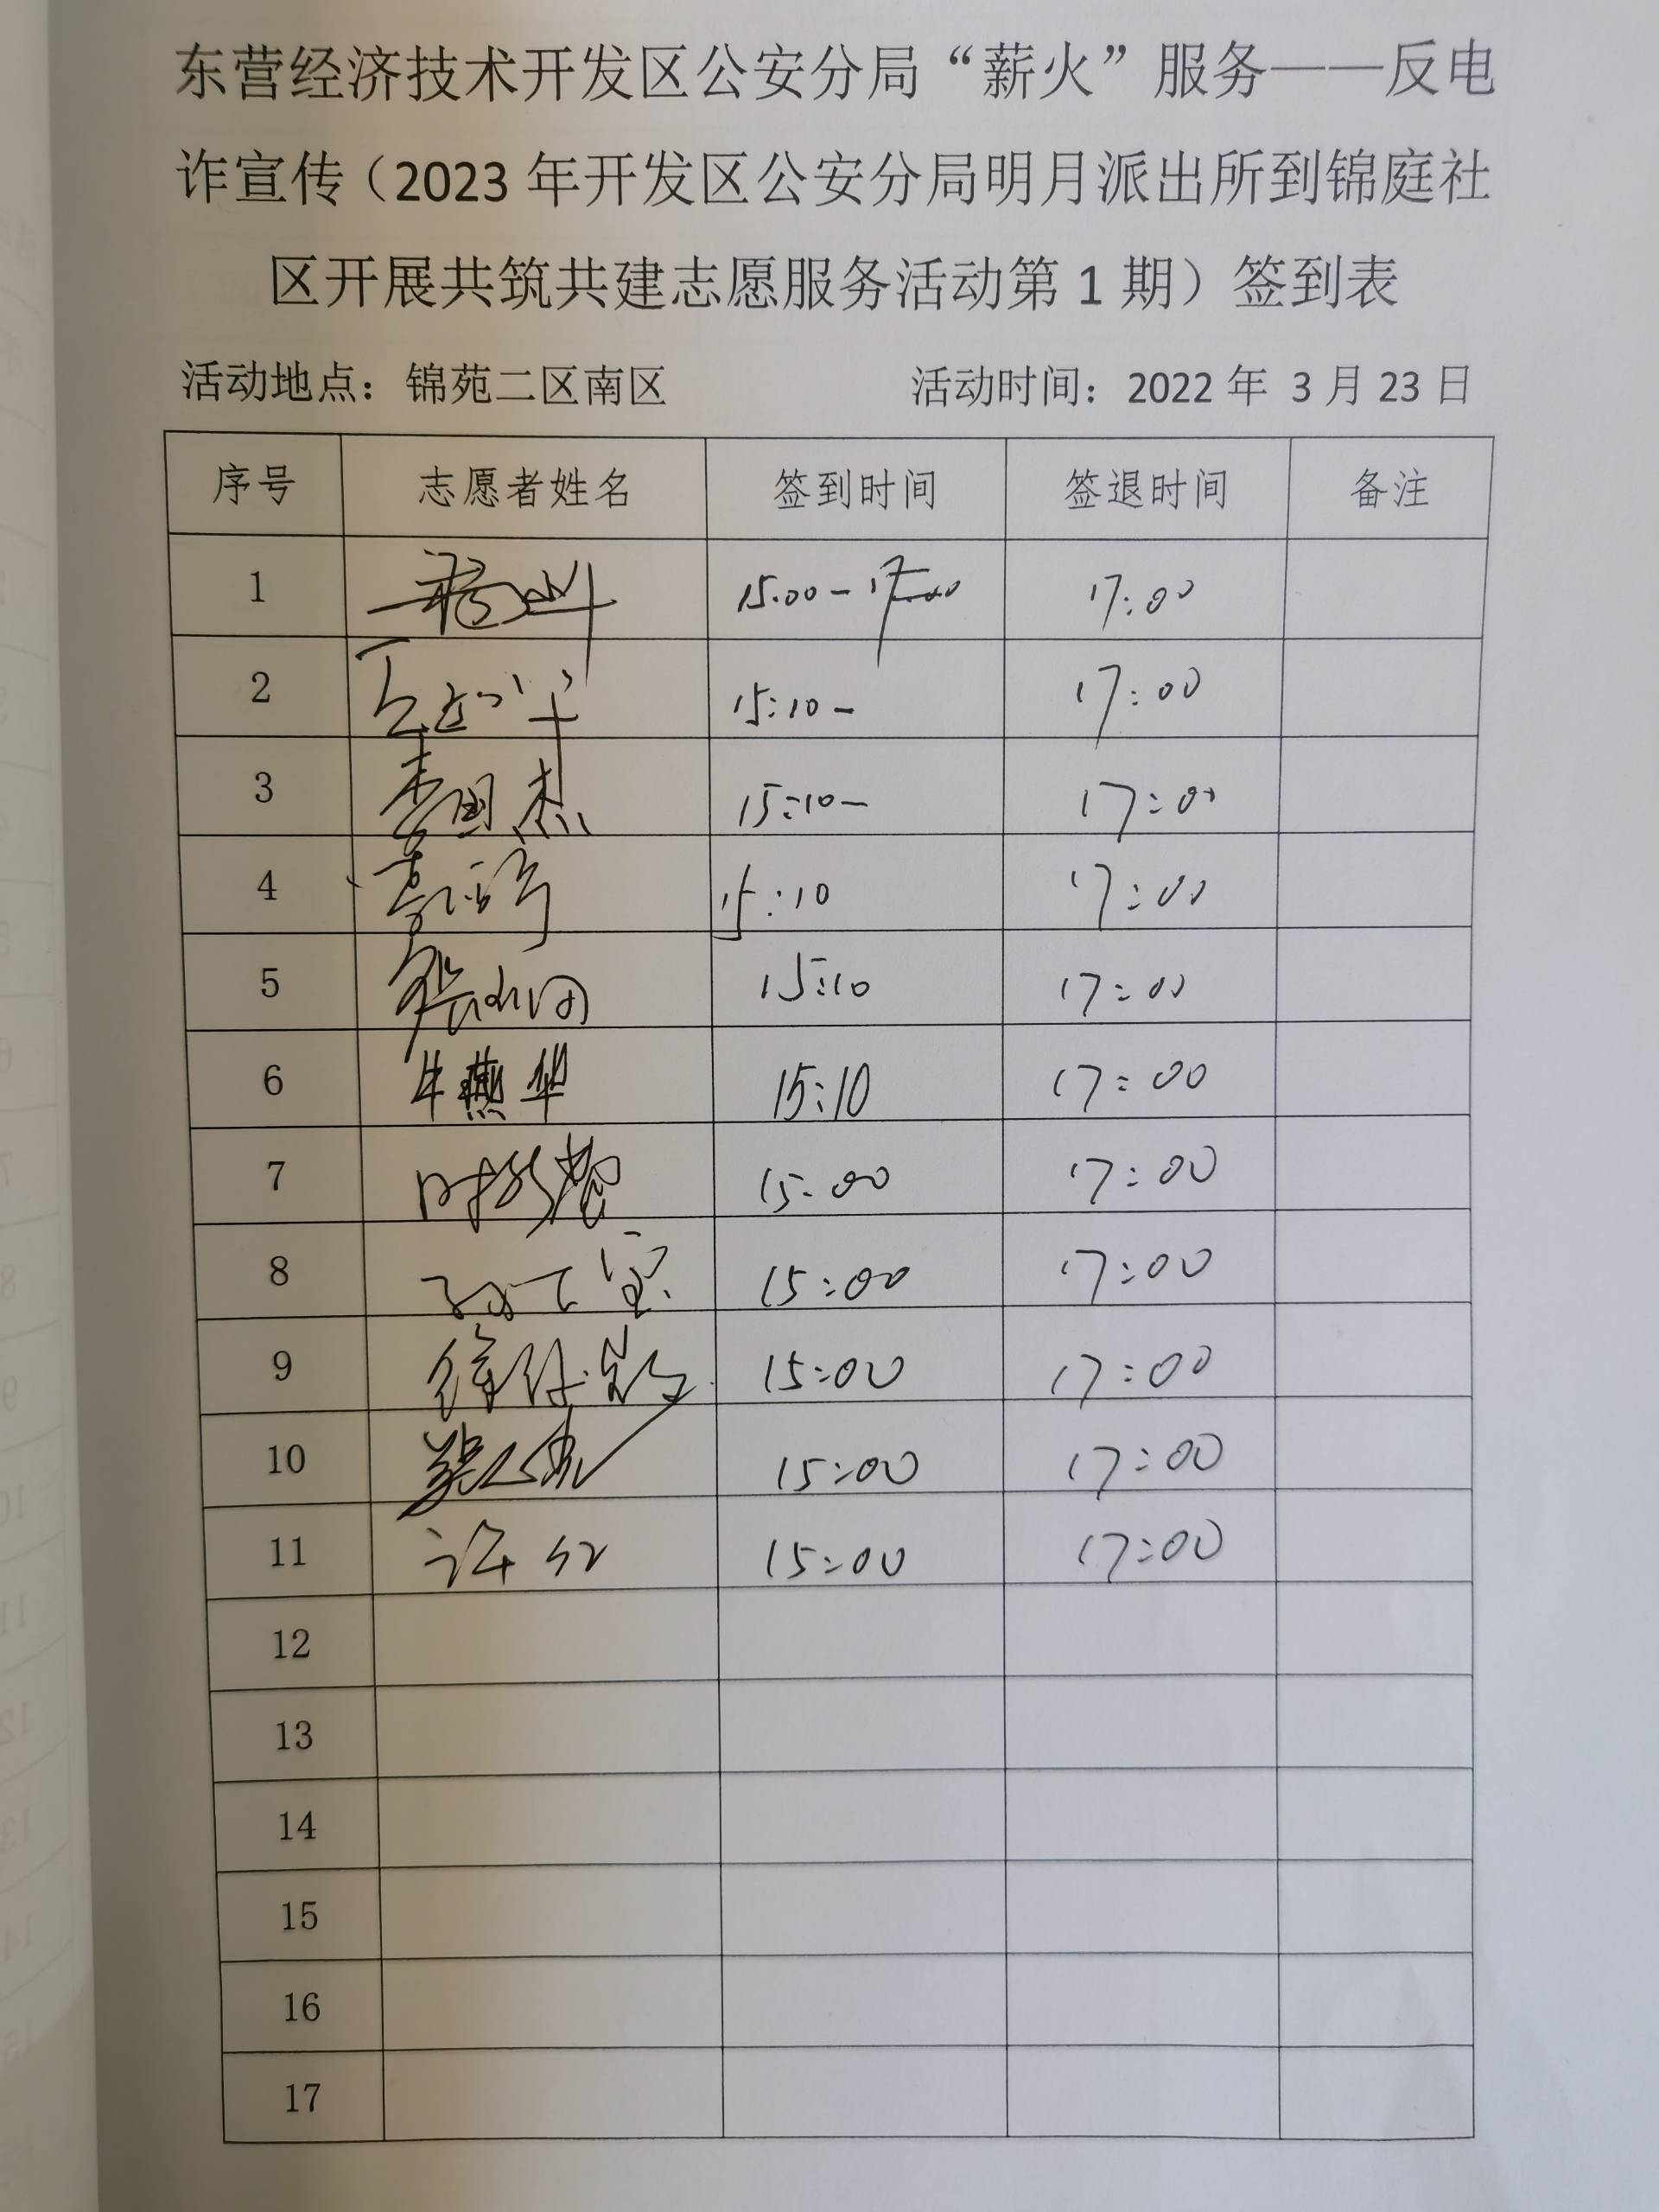 东营经济技术开发区公安分局“薪火”服务——反电
诈宣传（2023 年开发区公安分局明月派出所到锦庭社
区开展共筑共建志愿服务活动第 1 期）签到表
活动地点：锦苑二区南区 活动时间：2022 年 3 月 23 日
序号 志愿者姓名 签到时间 签退时间 备注
1 15:00- 17:00
2 15:10- 17:00
3 15:10- 17:00
4 15:10 17:00
5 15:10 17:00
6 牛燕华 15:10 17:00
7 15:00 17:00
8 15:00 17:00
9 15:00 17:00
10 15:00 17:00
11 许红 15:00 17:00
12
13
14
15
16
17